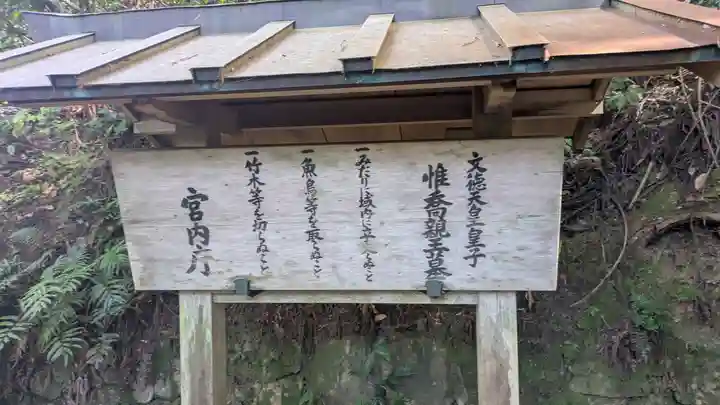 文徳天皇皇子
惟喬親王墓
一みだりに域内に立入らぬこと
一魚鳥等を取らぬこと
一竹木等を切らぬこと
宮内庁